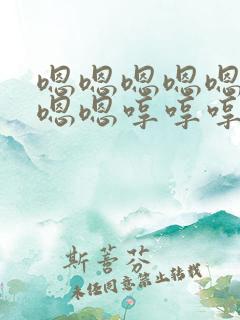 嗯嗯嗯嗯嗯
嗯嗯哼哼哼
斯萫芬
未经同意禁止转载